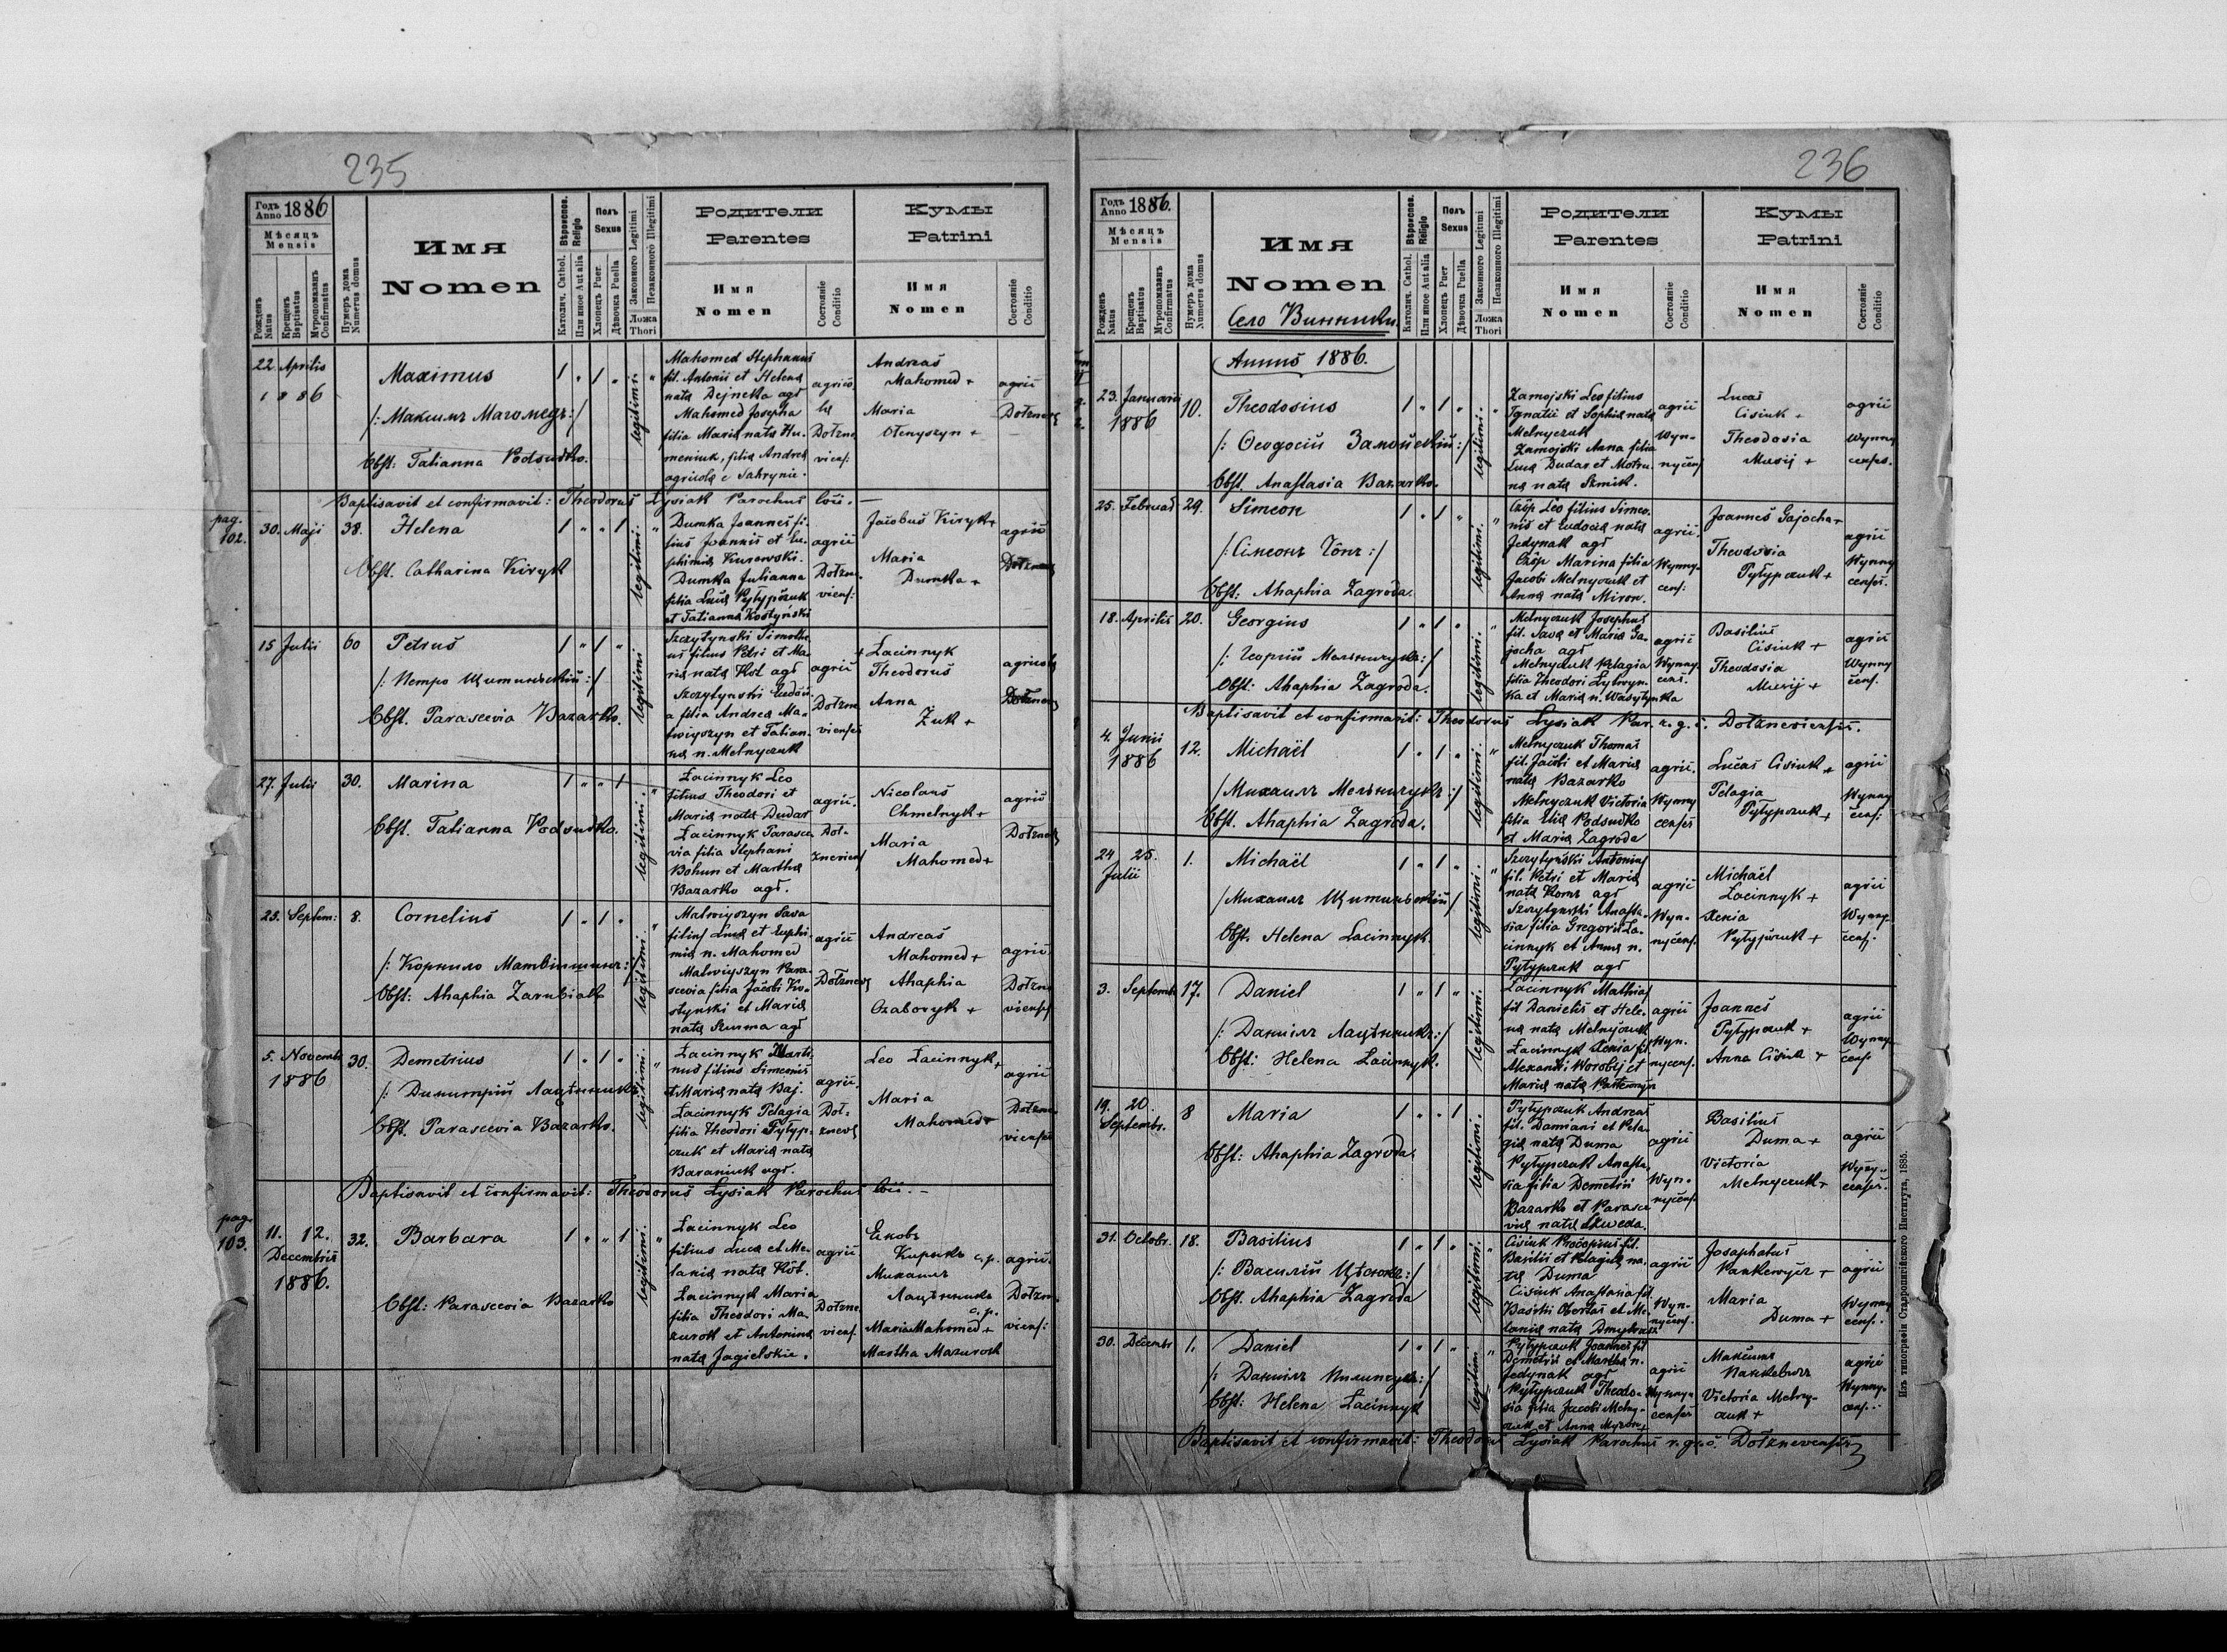 235
Годъ Anno 1886
Мѣсяць
Mensis
Рожденъ Natus
Крещенъ Baptisatus
Мѵропомазанъ Confirmatus
Нумеръ дома Numerus domus
Имя
Nomen
Вѣроиспов. Religio
Католич. Cathol.
Или иное Aut alia
Полъ Sexus
Хлопецъ Puer
Дѣвочка Puella
Законного Legitimi
Незаконного Illegitimi
Ложа Thori
Родители
Parentes
Имя
Nomen
Состояніе Conditio
Кумы
Patrini
Имя
Nomen
Состояніе Conditio
22. Aprilis
1886
Maximus
/: Максимъ Магомедъ :/
Obst: Tatianna Podsudko.
1 „ 1 „
legitimi.
Mahomed Stephanus
fil. Antonii et Helena
nata Dejneka agr
Mahomed Josepha
filia Maria nata Hu-
meniuk, filia Andrea
agricola e Sahrynie.
agrico
la
Dołzne
viens:
Andreas
Mahomed +
Maria
Ołenyszyn +
agric
Dołznev
Baptisavit et confirmavit: Theodorus Łysiak Parochus loci. —
pag. 102.
30. Maji
38.
Helena
Obst. Catharina Kiryk
1 „ „ 1
legitimi.
Dumka Joannes fi-
lius Joannis et Eu-
phimia Kurowski.
Dumka Julianna
filia Luca Pyłypczuk
et Tatianna Kostyński
agric
Dołzne-
viens:
Jacobus Kiryk +
Maria
Dumka +
agric
Dołznev
15 Julii
60
Petrus
/: Петро Щитинскій :/
Obst. Parascevia Bazarko.
1 „ 1 „
legitimi
Szczytynski Timothe-
us filius Petri et Ma-
ria nata Kot agr
Szczytynski Eudoci-
a filia Andrea Ma-
twiyszyn et Tatian-
na n. Melnyczuk
agric
Dołzne
vienses
+ Łacinnyk
Theodorus
Anna
Żuk +
agricola
Dołznev
27. Julii
30.
Marina
Obst. Tatianna Podsudko.
1 „ „ 1
legitimi.
Łacinnyk Leo
filius Theodori et
Maria nata Dudar
Łacinnyk Parasce-
via filia Stephani
Bohun et Martha
Bazarko agr.
agric.
Doł-
zneviens
Nicolaus
Chmelnyk +
Maria
Mahomed +
agric
Dołznev
23. Septem:
8.
Cornelius
/: Корнило Матвіишинъ :/
Obst: Ahaphia Zarubiak
1 „ 1 „
legitimi.
Matwiyszyn Sava
filius Luca et Euphi-
mia n. Mahomed
Matwiyszyn Para-
scevia filia Jacobi Ko-
stynski et Maria
nata Szuma agr
agric
Dołznev
Andreas
Mahomed +
Ahaphia
Ozaboryk +
agric
Dołzne
viens
5. Novemb.
1886
30.
Demetrius
/: Димитрій Лацѣнникъ :/
Obst. Parascevia Bazarko.
1 „ 1 „
legitimi.
Łacinnyk Marti-
nus filius Simeonis
et Maria nata Baj.
Łacinnyk Pelagia
filia Theodori Pyłyp-
czuk et Maria nata
Baraniuk agr.
agric.
Doł-
znev
Leo Łacinnyk +
Maria
Mahomed +
agric
Dołzne
vienses
Baptisavit et confirmavit: Theodorus Łysiak Parochus loci. —
pag. 103.
11. 12.
Decembris
1886.
32.
Barbara
Obst: Parascevia Bazarko
1 „ „ 1
legitimi.
Łacinnyk Leo
filius Luca et Me-
lania nata Kôt.
Łacinnyk Maria
filia Theodori Ma-
zurok et Antonina
nata Jagielskie.
agric
Dołzne
viens.
Яковъ
Кирикъ с.р.
Михаилъ
Лацѣнникъ с.р.
Maria Mahomed +
Martha Mazurok
agric.
Dołzne
viens:
236
Годъ Anno 1886.
Мѣсяць
Mensis
Рожденъ Natus
Крещенъ Baptisatus
Мѵропомазанъ Confirmatus
Нумеръ дома Numerus domus
Имя
Nomen
Село Винники.
Вѣроиспов. Religio
Католич. Cathol.
Или иное Aut alia
Полъ Sexus
Хлопецъ Puer
Дѣвочка Puella
Законного Legitimi
Незаконного Illegitimi
Ложа Thori
Родители
Parentes
Имя
Nomen
Состояніе Conditio
Кумы
Patrini
Имя
Nomen
Состояніе Conditio
Annus 1886.
23. Januarii
1886
10.
Theodosius
/: Ѳеодосій Замойскій :/
Obst. Anastasia Bazarko.
1 „ 1 „
legitimi.
Zamojski Leo filius
Ignatii et Sophia nata
Melnyczuk
Zamojski Anna filia
Luca Dudar et Motru-
na nata Semik.
agric
Wyn-
nycens
Lucas
Cisiuk +
Theodosia
Musij +
agric
Wynny
censes.
25. Februar
29.
Simeon
/: Сімеонъ Чôпъ :/
Obst: Ahaphia Zagroda.
1 „ 1 „
legitimi.
Czôp Leo filius Simeo-
nis et Eudocia nata
Jedynak agr
Czôp Marina filia
Jacobi Melnyczuk et
Anna nata Miron.
agric
Wynny-
cens:
Joannes Gajocha +
Theodosia
Pyłypczuk +
agric
Wynny
censes.
18. Aprilis
20.
Georgius
/: Георгій Мельничукъ :/
Obst: Ahaphia Zagroda.
1 „ 1 „
legitimi.
Melnyczuk Josephus
fil. Sava et Maria Ga-
jocha agr
Melnyczuk Pelagia
filia Theodori Łytwyn-
ka et Maria n. Wasyłynka
agric
Wynny-
cens.
Basilius
Cisiuk +
Theodosia
Musij +
agric
Wynny
cens.
Baptisavit et confirmavit: Theodorus Łysiak Par. r. g. c. Dołzneviensis.
4. Junii
1886
12.
Michaël
/: Михаилъ Мельничукъ :/
Obst. Ahaphia Zagroda.
1 „ 1 „
legitimi.
Melnyczuk Thomas
fil. Jacobi et Maria
nata Bazarko
Melnyczuk Victoria
filia Elia Podsudko
et Maria Zagroda
agric.
Wynny
censes
Lucas Cisiuk +
Pelagia
Pyłypczuk +
agric
Wynny
cens:
24 25.
Julii
1.
Michaël
/: Михаилъ Щитинскій :/
Obst. Helena Łacinnyk.
1 „ 1 „
legitimi.
Szczytyński Antonius
fil. Petri et Maria
nata Kornz agr
Szczytynski Anasta-
sia filia Gregorii Ła-
cinnyk et Anna n.
Pyłypczuk agr
agric
Wyn-
nycens.
Michaël
Łacinnyk +
Xenia
Pyłypczuk +
agric
Wynny
cens.
3. Septemb.
17.
Daniel
/: Даніилъ Лацѣнникъ :/
Obst: Helena Łacinnyk.
1 „ 1 „
legitimi.
Łacinnyk Mathias
fil Danielis et Hele-
na nata Melnyczuk
Łacinnyk Xenia fil.
Alexandri Worobij et
Maria nata Pankewycz
agric
Wyn-
nycens.
Joannes
Pyłypczuk +
Anna Cisiuk +
agric
Wynny
cens
19. 20.
Septembr.
8
Maria
Obst: Ahaphia Zagroda.
1 „ „ 1
legitimi.
Pyłypczuk Andreas
fil. Damiani et Pela-
gia nata Duma
Pyłypczuk Anasta-
sia filia Demetrii
Bazarko et Parasce-
via nata Szweda.
agric
Wyn-
nycens.
Basilius
Duma +
Victoria
Melnyczuk +
agric
Wyny-
censes.
31. Octobr.
18.
Basilius
/: Василій Цѣсюкъ :/
Obst. Ahaphia Zagroda
1 „ 1 „
legitimi.
Cisiuk Procopius fil.
Basilii et Pelagia na-
ta Duma
Cisiuk Anastasia fil.
Basilii Obertas et Me-
lania nata Dmytrasz
agric
Wyn-
nycens.
Josaphatus
Pankewycz +
Maria
Duma +
agric
Wynny
cens.
30. Decembr
1.
Daniel
/: Даніилъ Пилипчукъ :/
Obst: Helena Łacinnyk
1 „ 1 „
legitim
Pyłypczuk Joannes fil
Demetrii et Martha n.
Jedynak agr
Pyłypczuk Theodo-
sia filia Jacobi Melny-
czuk et Anna Myron
agric
Wynny-
censes
Максимъ
Панкевичъ
Victoria Melny-
czuk +
agric
Wynny-
cens.
Baptisavit et confirmavit: Theodorus Łysiak Parochus r. g. c. Dołznevensis
Изъ типографіи Ставропигійского Института, 1885.